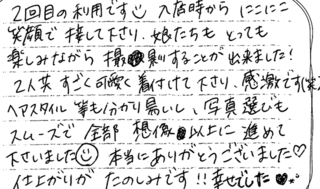 2回目の利用です 入店時から にこにこ
笑顔で 接して下さり、娘たちも とっても
楽しみながら 撮影することが 出来ました!
2人共 すごく可愛く 着付けて 下さり、感激です(笑)
ヘアスタイル 等も分かり易いし、写真選びも
スムーズで 全部 想像以上に 進めて
下さいました 本当にありがとうございました♡
仕上がりが たのしみです!! 幸せでした♡